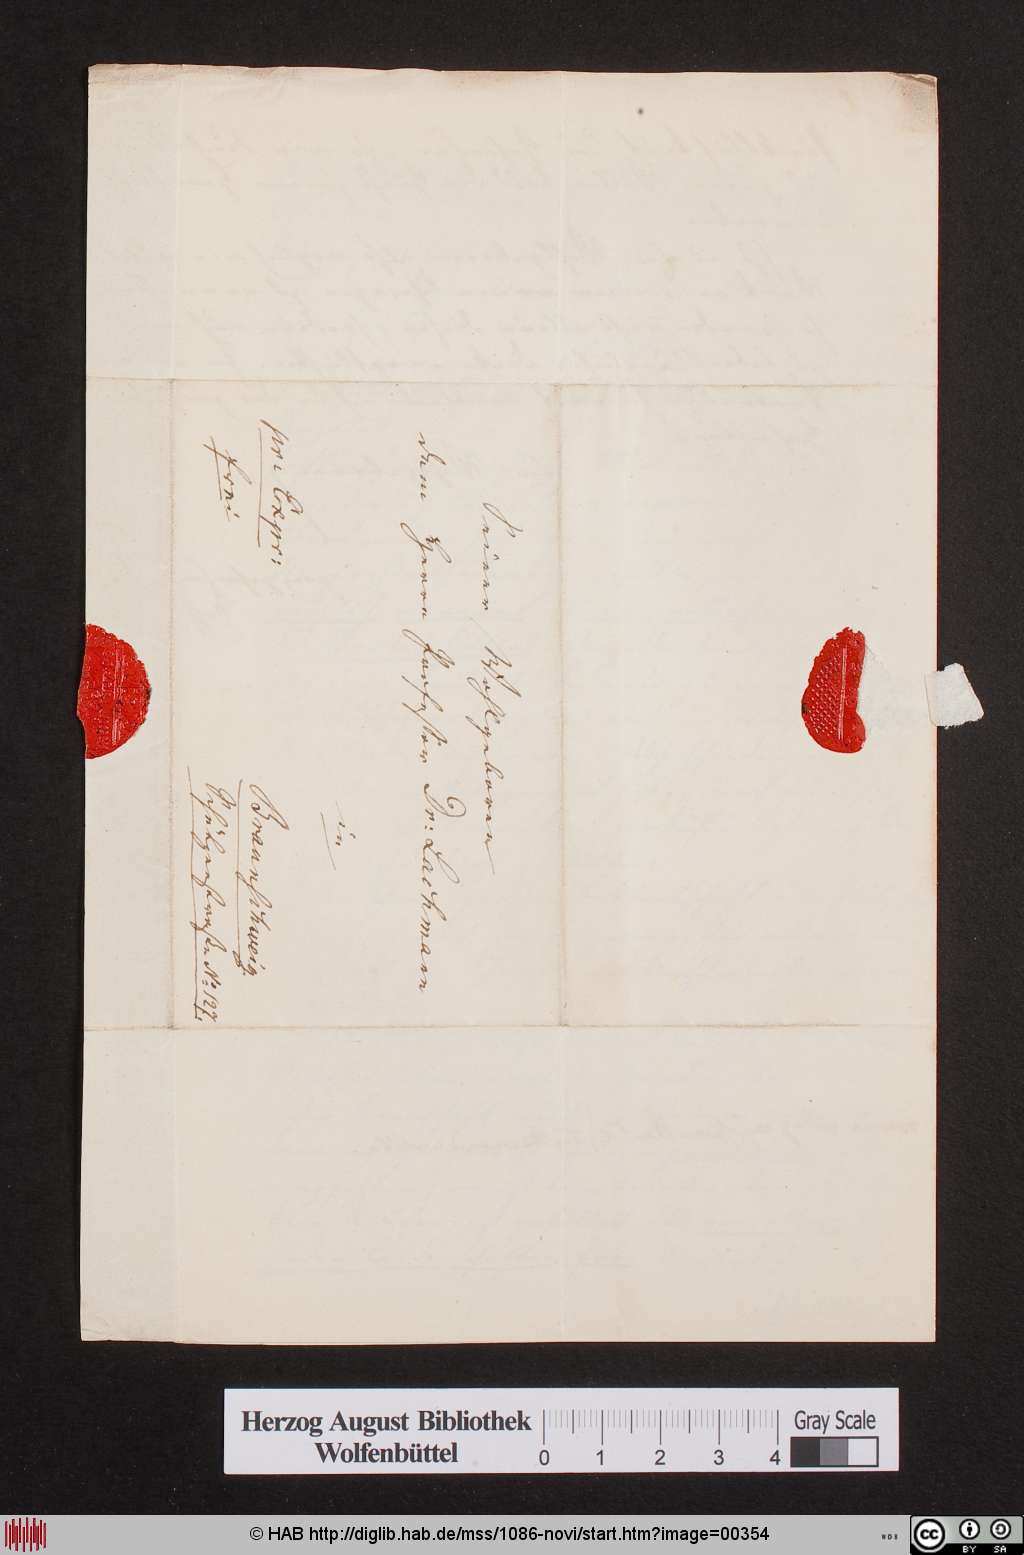 Seiner Wohlgeboren
dem Herrn Professor Dr: Lachmann
in
Braunschweig.
No: 127.
pr: Expr:
frei
Herzog August Bibliothek
Wolfenbüttel
0 1 2 3 4
Gray Scale
© HAB http://diglib.hab.de/mss/1086-novi/start.htm?image=00354
WDB
cc BY SA